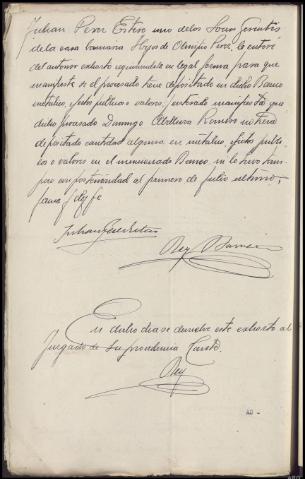 Julian Perez Esteo uno de los Socios Gerentes
de la casa bancaria Hijos de Olimpio Perez, le enteré
del anterior exhorto requiriendole en legal forma para que
manifieste si el procesado tiene depositado en dicho Banco
metalico, efectos publicos o valores, enterado manifiesta que
dicho procesado Domingo Romero no tiene
depositado cantidad alguna en metalico, efectos publi
cos o valores en el mencionado Banco, ni lo tuvo tam
poco con posterioridad al primero de Julio ultimo,
firma y doy fe
Julian Perez Esteo
Rey
En dicho dia se devuelve este exhorto al
Juzgado de su procedencia
Rey